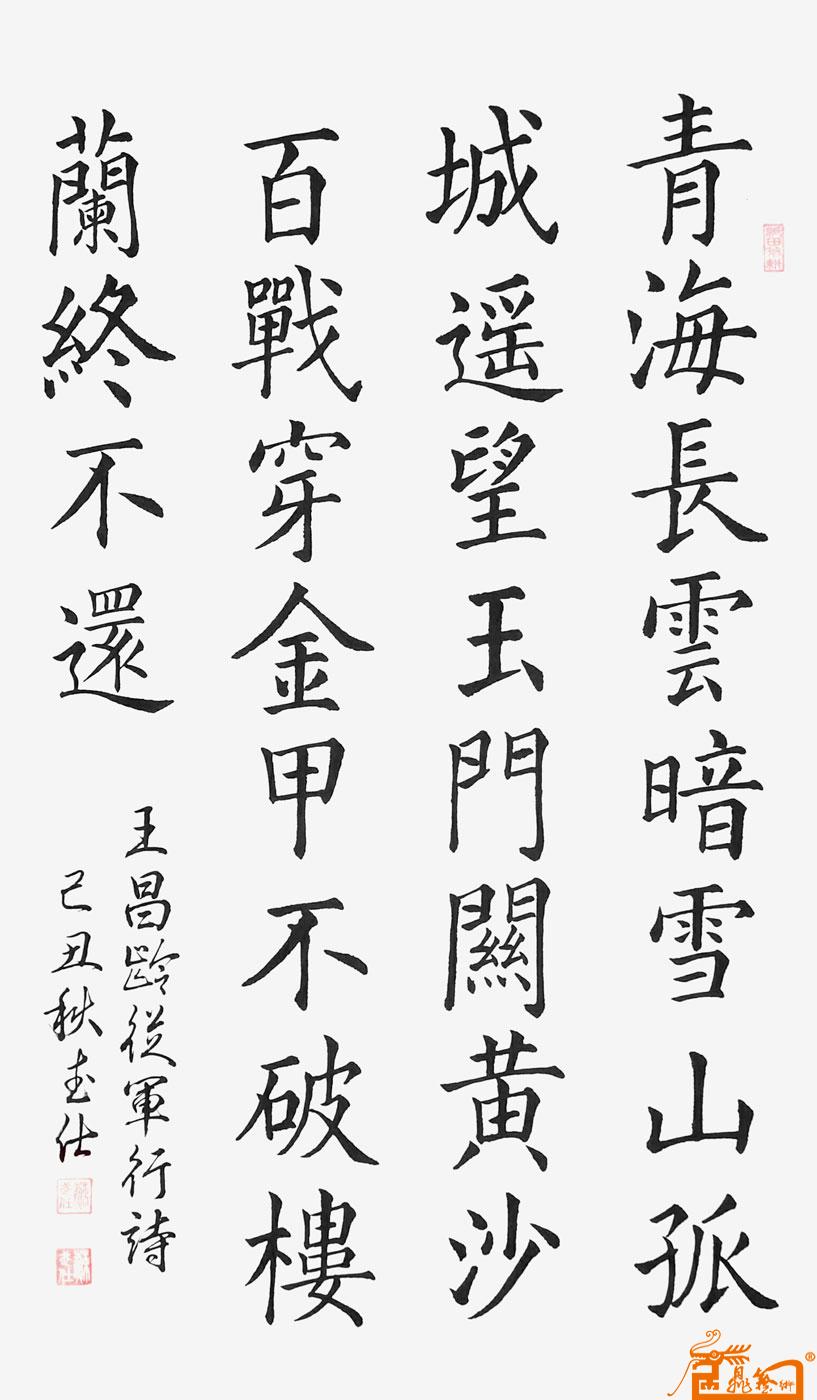 青海長雲暗雪山孤
城遥望玉門關黄沙
百戰穿金甲不破樓
蘭終不還
王昌齡從軍行詩
己丑秋志仕